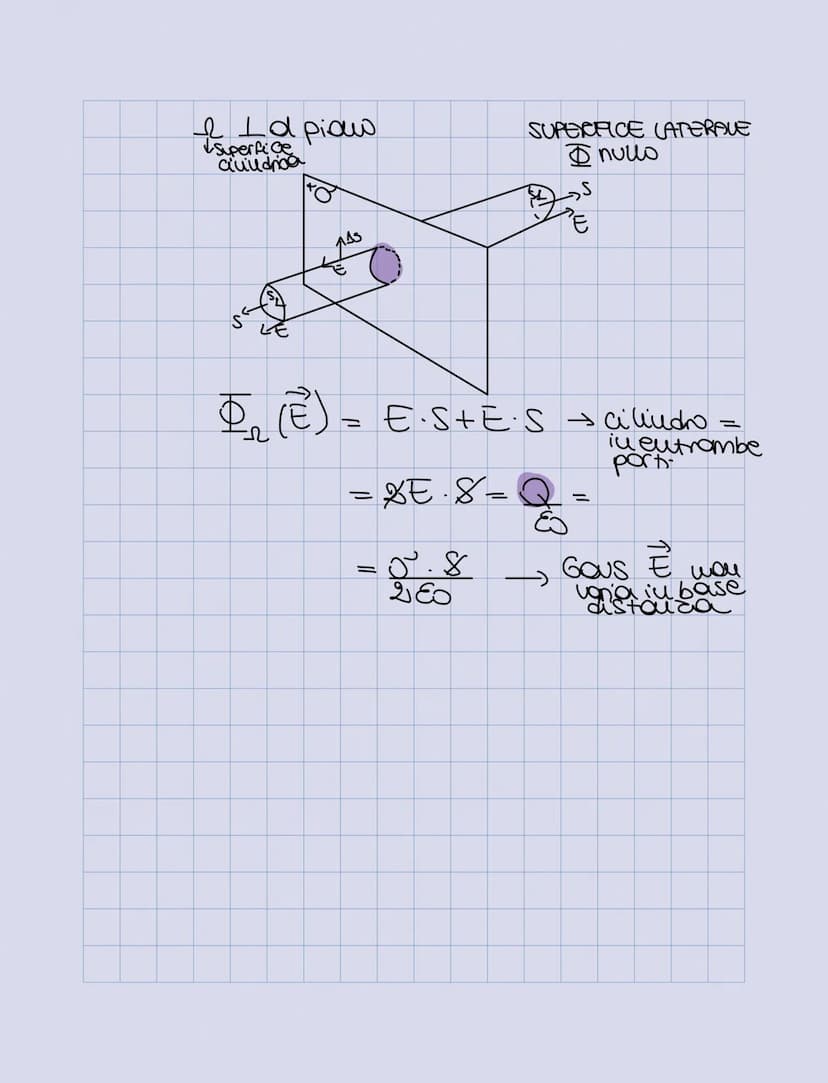 Ω ⊥ al piano
↓ superficie
cilindrica
SUPERFICE LATERALE
Φ nullo
+σ
ΔS
E
S
E
S
E
S
S
E
Φ_Ω (E⃗) = E·S + E·S → cilindro =
in entrambe
parti
= 2E·S = Q/ε0 =
= σ·S/2ε0 → Gaus E⃗ non
varia in base
distanza